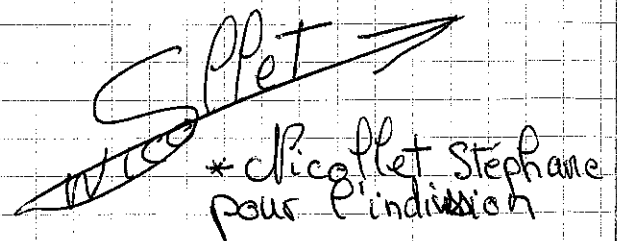 Nico Sllet
* Nicollet Stéphane
pour l'indivision